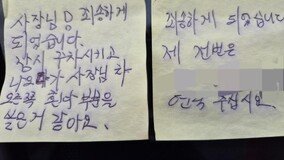 사장님 죄송하게
되었습니다.
잠시 주차시키고
나오다가 사장님 차
오른쪽 휀다 부분을
긁은거 같아요.
죄송하게 되었습니다
제 전번은
연락 주십시요.